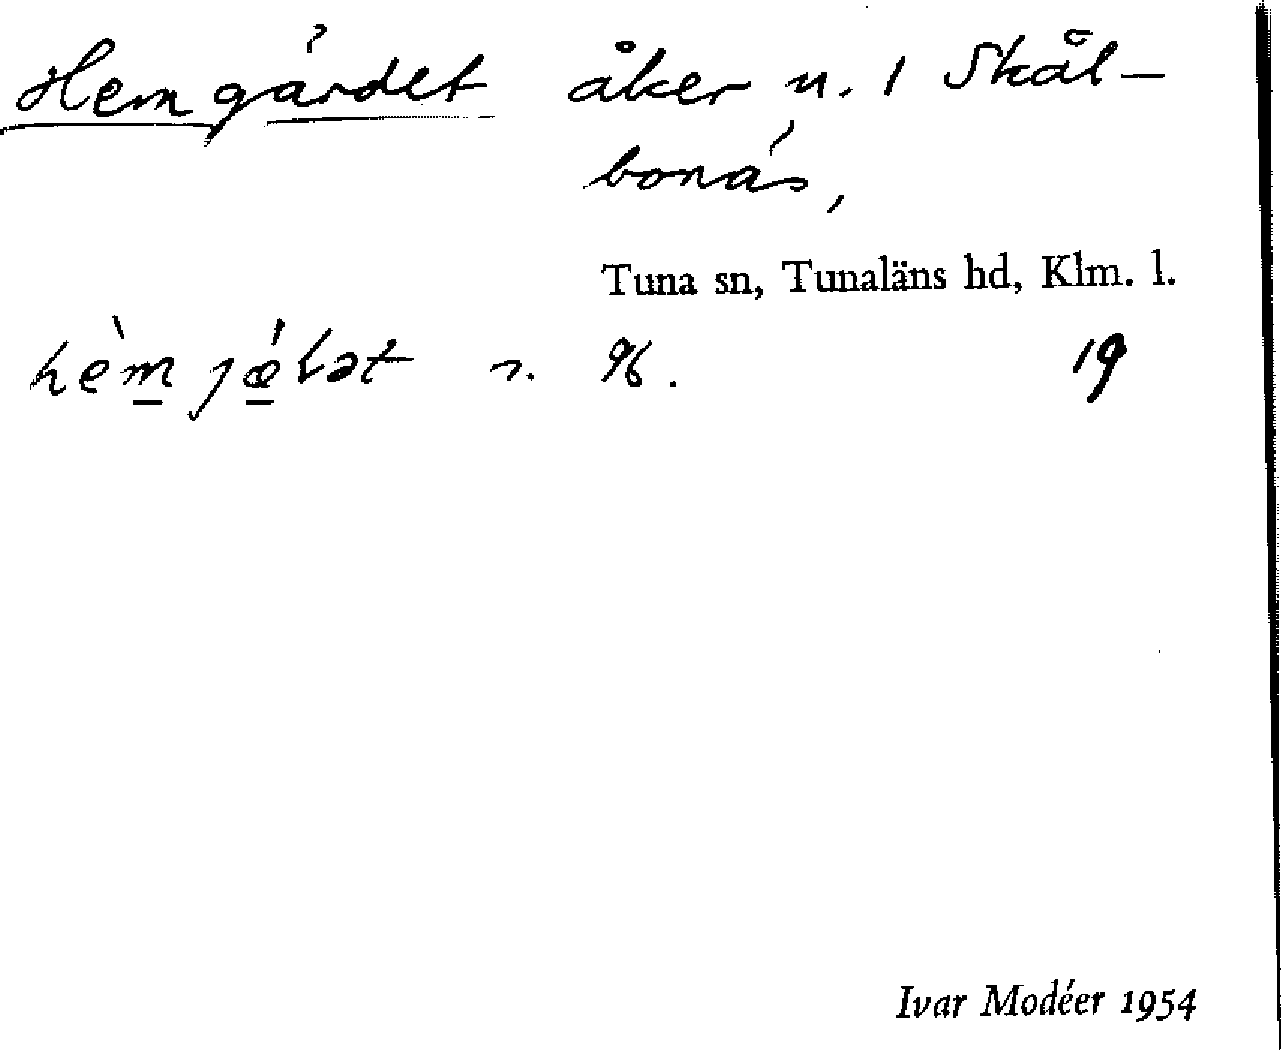 Hemgärdet åker u. 1 Skål-
bonäs,
Tuna sn, Tunaläns hd, Klm. l.
hèm jǽ n. 19
Ivar Modéer 1954